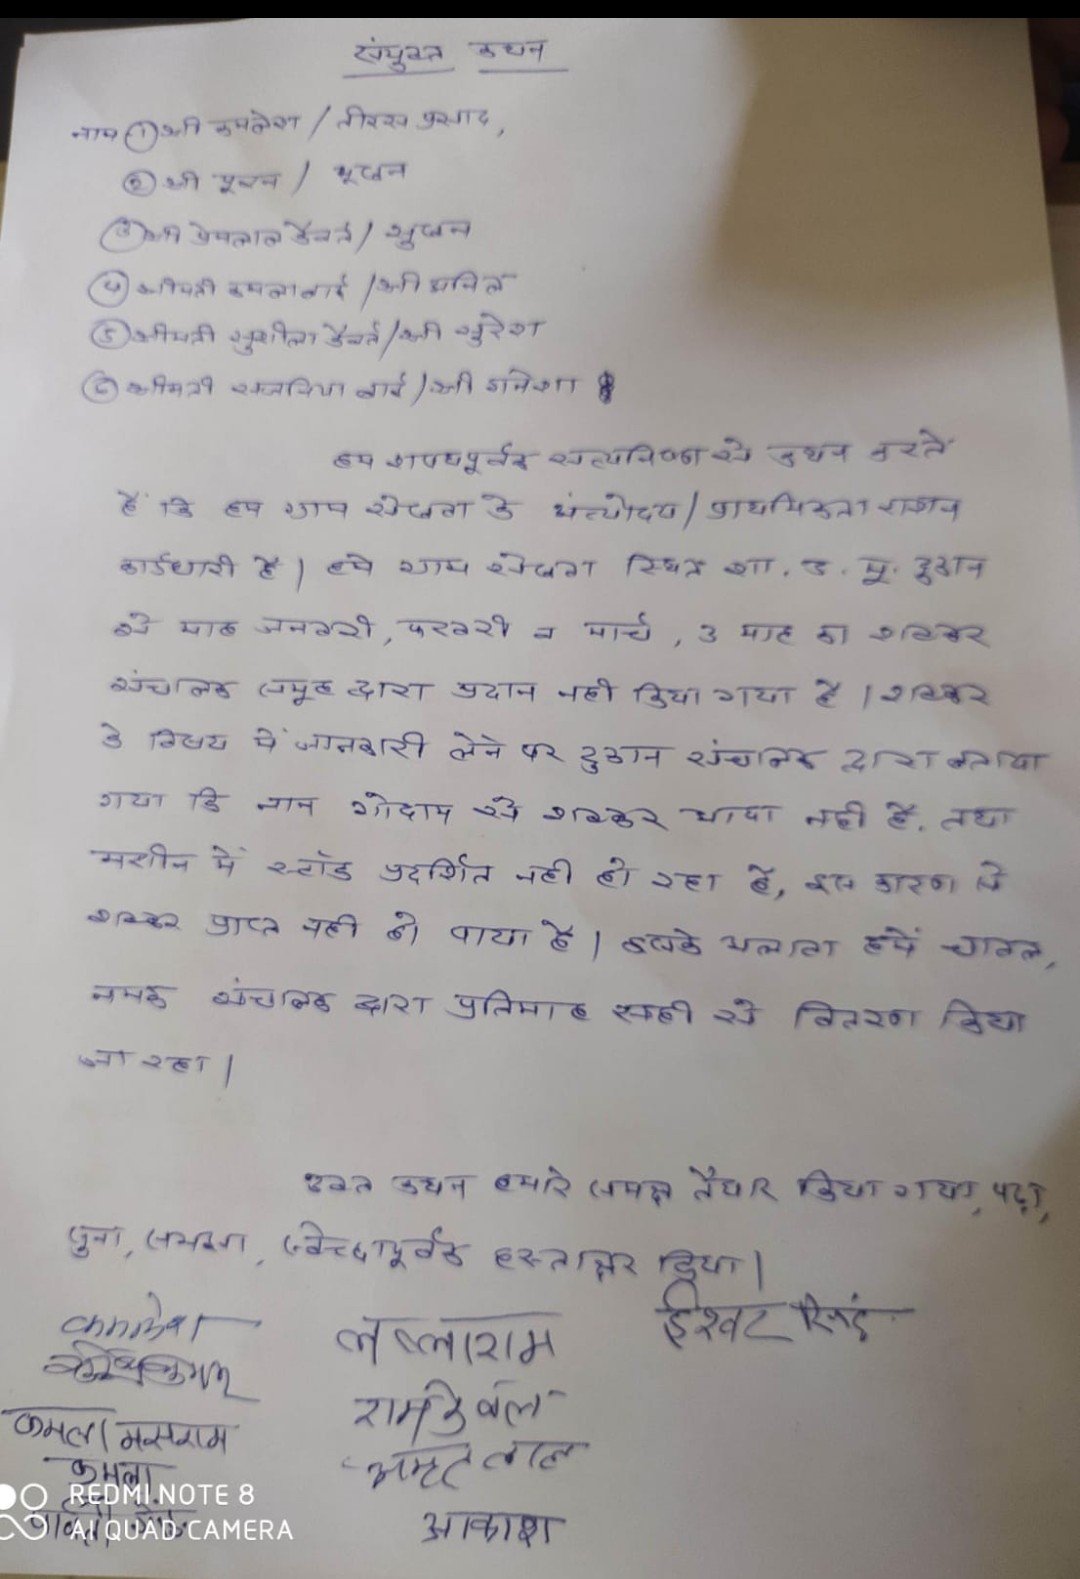 संयुक्त कथन
नाम ① श्री कमलेश / तीरथ प्रसाद,
② श्री पूरन / भूखन
③ श्री प्रेमलाल कैवर्त / भुखन
④ श्रीमती कमलाबाई / श्री अनिल
⑤ श्रीमती सुशीला कैवर्त / श्री सुरेश
⑥ श्रीमती बाई / श्री गनेश
हम शपथपूर्वक सत्यनिष्ठा से कथन करते
हैं कि हम ग्राम के अंत्योदय / प्राथमिकता राशन
कार्डधारी है । हमे ग्राम स्थित शा. उ. मू. दुकान
से माह जनवरी, फरवरी व मार्च, 3 माह का शक्कर
संचालक समूह द्वारा प्रदान नही किया गया है । शक्कर
के विषय में जानकारी लेने पर दुकान संचालक द्वारा बताया
गया कि नान गोदाम से शक्कर आया नही है. तथा
मशीन में स्टॉक प्रदर्शित नही हो रहा है, इस कारण से
शक्कर प्राप्त नही हो पाया है । इसके अलावा हमें चावल,
नमक संचालक द्वारा प्रतिमाह सही से वितरण किया
जा रहा ।
उक्त कथन हमारे समक्ष तैयार किया गया, पढ़ा,
सुना, समझा, स्वेच्छापूर्वक हस्ताक्षर किया ।
कमलेश लल्लाराम ईश्वर सिंह
रामकेवल
कमला मसराम
कमला अमृत लाल
आकाश
REDMI NOTE 8
AI QUAD CAMERA